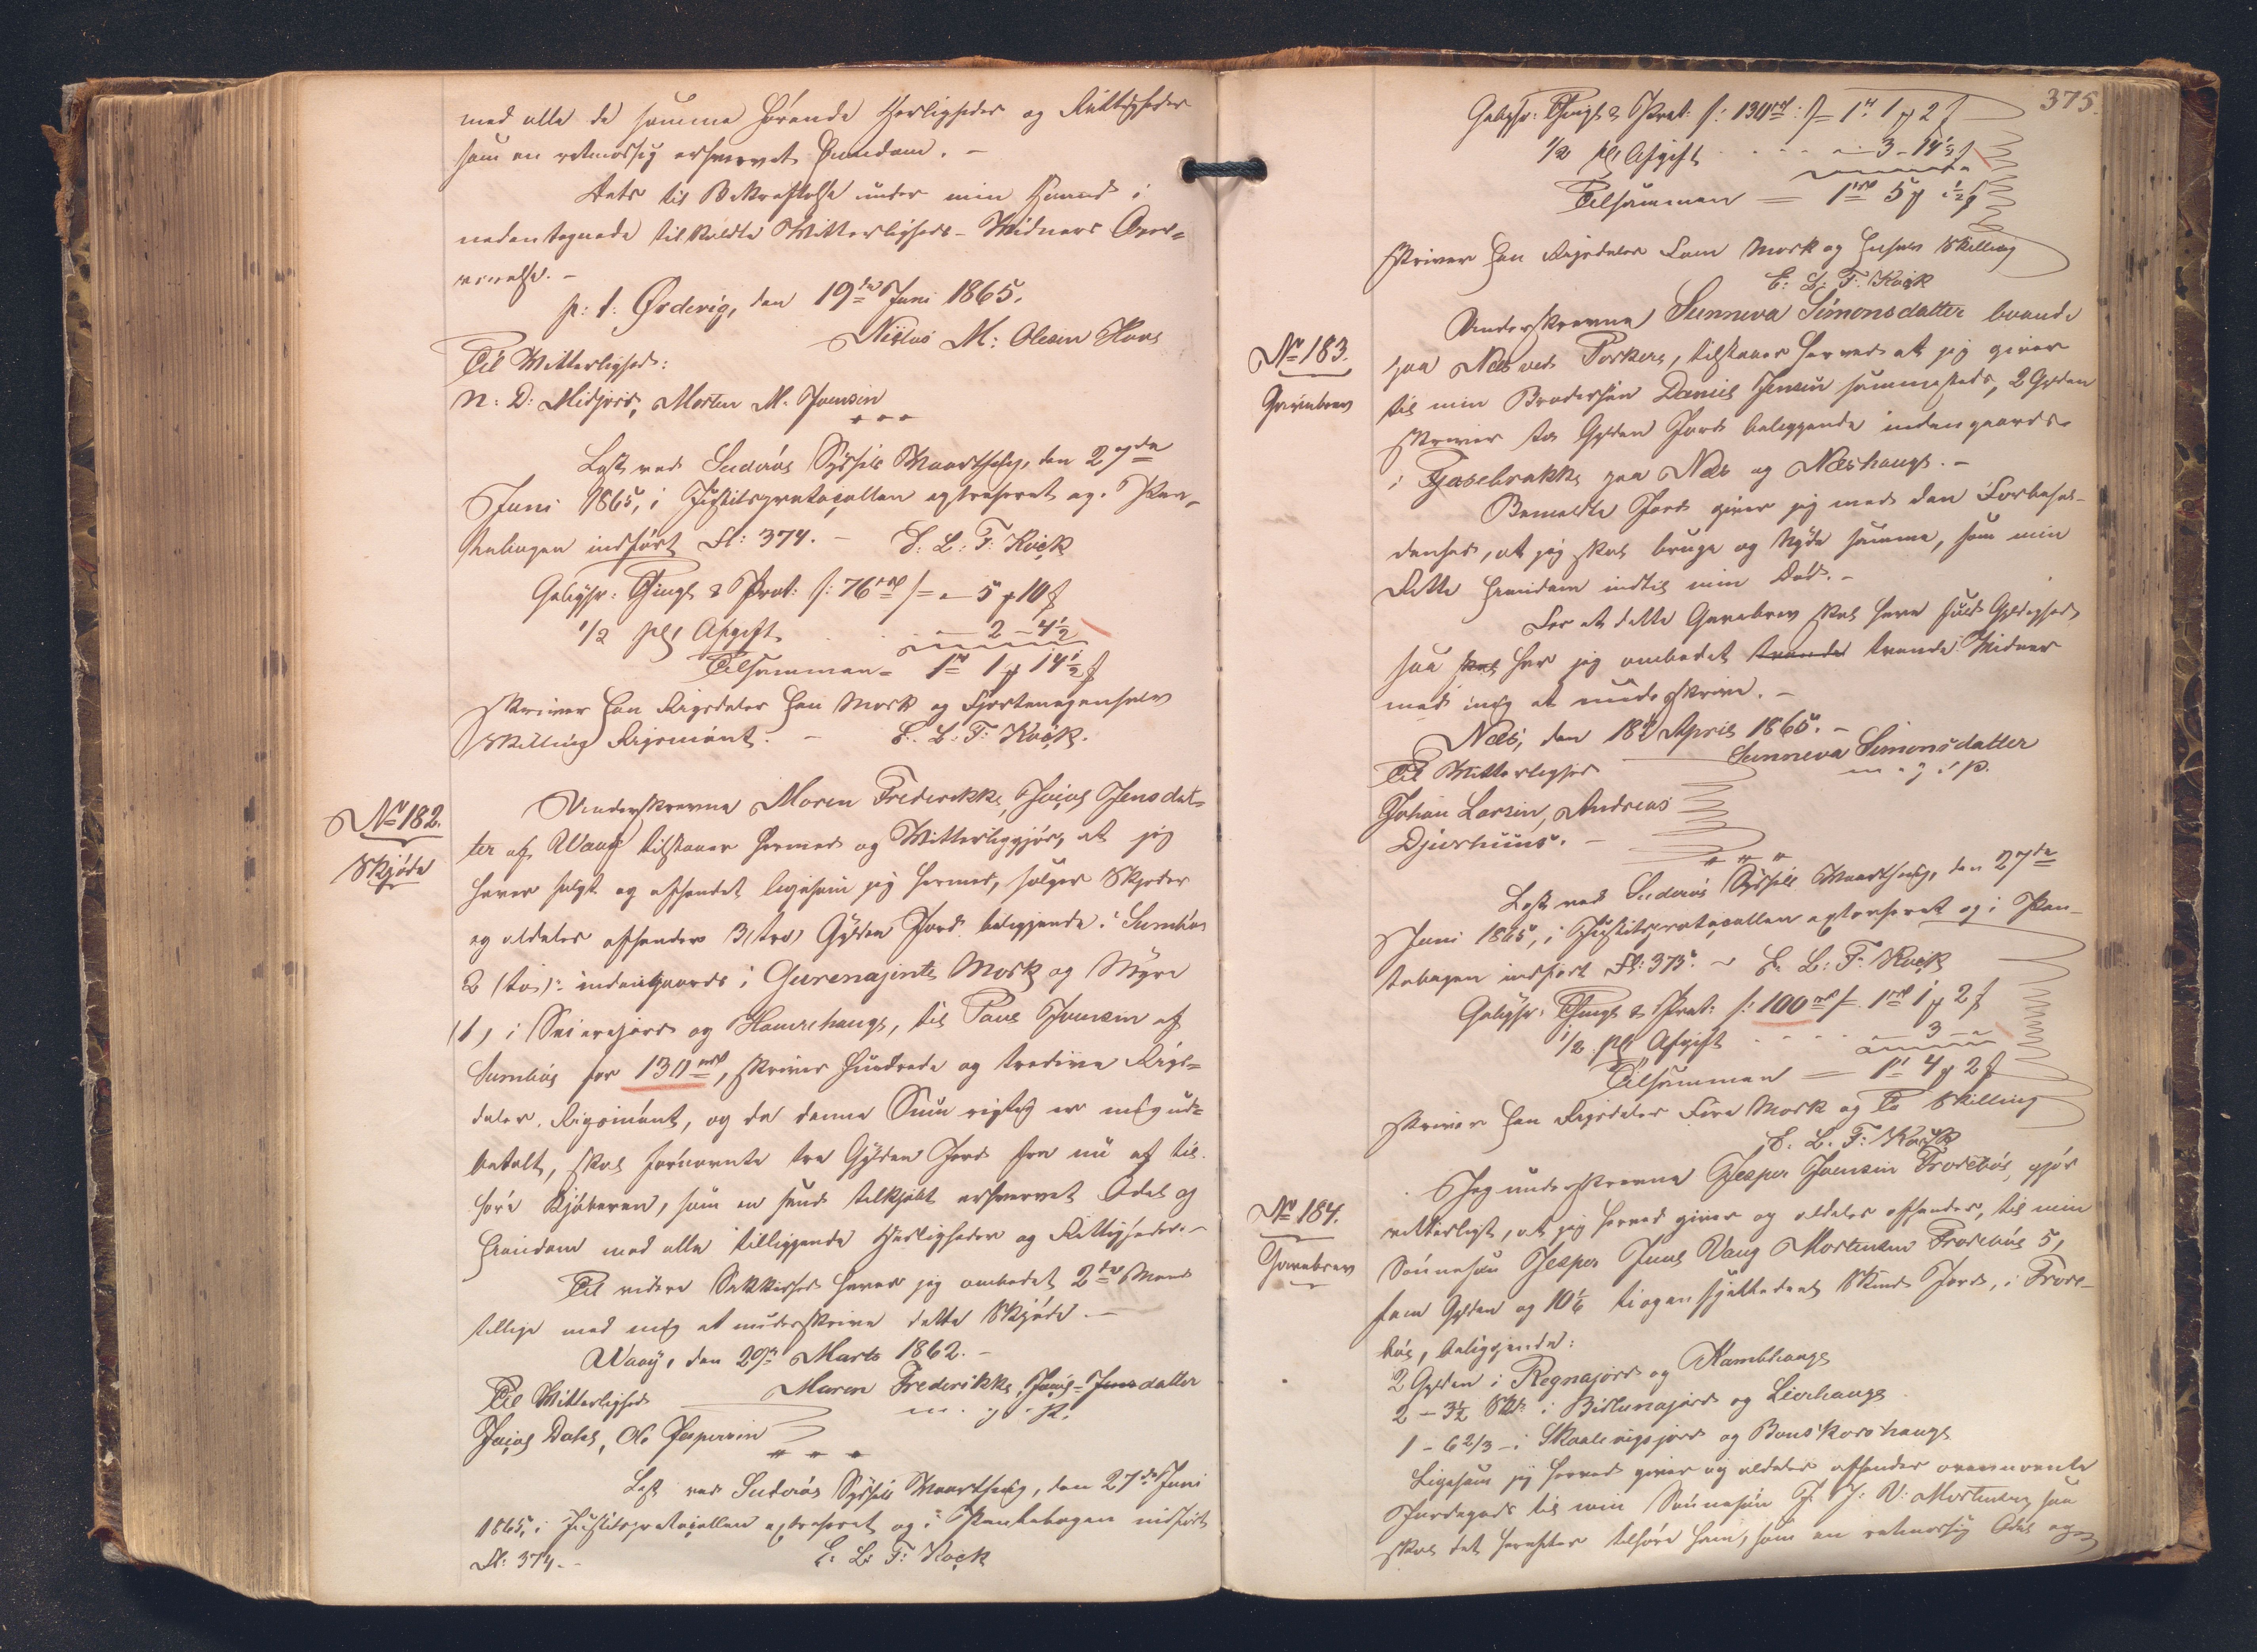 med alle de samme hørende Herligheder og Rettigheder
som en retmæssig erhvervet Eiendom. -
Dets til Bekræftelse under min Haand i
nedentegnede tilkaldte Vitterligheds-Vidners Over=
værelse. -
p: t: Ørdevig, den 19de Juni 1865.
Niklas M: Olesen Hov
Til Vitterlighed:
N: D: Midjord, Morten M. Joensen
Læst ved Suderøes Syssels Vaarthing, den 27de
Juni 1865, i Justitsprotocollen extraheret og i Pan-
tebogen indført Fl: 374. - E: L: T: Kock
Gebyhr: Thingl & Prot: /: 76 rd /= - 5 10
1/2 pCt Afgift - 2 - 4 1/2
Tilsammen = 1 rd 1 14 1/2
skriver Een Rigsdaler Een Mark og Fjortenogenhalv
Skilling Rigsmønt. - E: L: T: Kock.
No 182.
Skjøde
Underskrevne Maren Frederikke Joias Jensdat=
ter af Vaag tilstaaer hermed og Vitterliggjør, at jeg
haver solgt og afhændet ligesom jeg hermed, sælger Skjøder
og aldeles afhænder 3 (tre) Gylden Jord beliggende i Sumbøe
2 (to): indengaards i Gurenajinte Mork og Myre
(1) i Sniarajord og Hamrehauge, til Poul Joensen af
Sumbøe for 130 rd, skriver Hundrede og tredive Rigs=
daler, Rigsmønt, og da denne Sum rigtig er mig ud=
betalt, skal fornævnte tre Gylden Jord fra nu af til=
høre Kjøberen, som en sand tilkjøbt erhvervet Odel og
Eiendom med alle tilliggende Herligheder og Rettigheder. -
Til videre Sikkerhed haver jeg ombedet 2de Mænd
tillige med mig at underskrive dette Skjøde. -
Vaag, den 29de Marts 1862. -
Til Vitterlighed Maren Frederikke Joias Jensdatter
m. f. P.
Joias Dahl, Ole Jespersen
Læst ved Suderøes Syssels Vaarthing, den 27de Juni
1865, i Justitsprotocollen extraheret og i Pantebogen indført
Fl: 374. - E: L: T: Kock
375.
Gebyhr: Thingl & Prot: /: 130 rd :/ = 1 rd 1 2
1/2 pCt Afgift - 3 - 14 1/2
Tilsammen = 1 rd 5 1/2
skriver Een Rigsdaler Fem Mark og Halv Skilling
E: L: T: Kock
No 183.
Gavebrev
Underskrevne Sunneva Simonsdatter boende
paa Næs ved Porkere, tilstaaer herved at jeg giver
til min Brodersøn Daniel Jensen sammesteds, 2 Gylden
skriver to Gylden Jord beliggende indengaards
i Gjasebrekke paa Næs og Næshauge. -
Bemeldte Jord giver jeg med den Forbehol-
denhed, at jeg skal bruge og Nyde samme, som min
Rette Eiendom indtil min Død. -
For at dette Gavebrev skal have fuld Gyldighed,
saa skal har jeg ombedet tvende tvende Vidner
med mig at underskrive. -
Næs, den 18de April 1865. -
Til Vitterlighed Sunneva Simonsdatter
m. f. P.
Johan Larsen, Andreas
Djurhuus. -
Læst ved Suderøes Syssels Vaarthing, den 27de
Juni 1865, i Justitsprotocollen extraheret og i Pan-
tebogen indført Fl: 375. - E: L: T: Kock
Gebyhr: Thingl & Prot: /: 100 rd /= 1 rd 1 2
1/2 pCt Afgift - 3 -
Tilsammen = 1 rd 4 2
skriver Een Rigsdaler Fire Mark og To Skilling
E: L: T: Kock
No 184.
Gavebrev
Jeg underskrevne Jesper Joensen Frodebøe, gjør
vitterligt, at jeg herved giver og aldeles afhænder, til min
Sønnesøn Jesper Juul Vang Mortensen Frodebøe 5,
fem Gylden og 10 1/6 tiogensjettedeel Skind Jord, i Frode-
bøe, beliggende:
2 Gylden i Regnajord og Kambhauge
2 - 3 1/2 Sk: i Bislunajord og Lierhauge
1 - 6 2/3 - i Skaalevigsjord og Bonskorshauge
Ligesom jeg herved giver og aldeles afhænder ovennævnte
Jordegods til min Sønnesøn J. J: V: Mortensen, saa
skal det herefter tilhøre ham, som en retmæssig Odel og